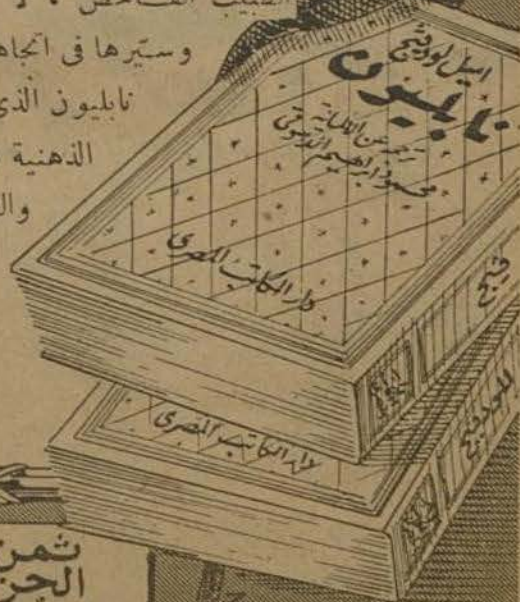 الطبيب الفاحص
وسيرها فى اتجاه
نابليون الذى
الذهنية
وال
اميل لودفيج
نابليون
ترجمه عن الألمانية
محمود ابراهيم الدسوقى
دار الكاتب المصرى
دار الكاتب المصرى
للودفيج
ثمن
الجز